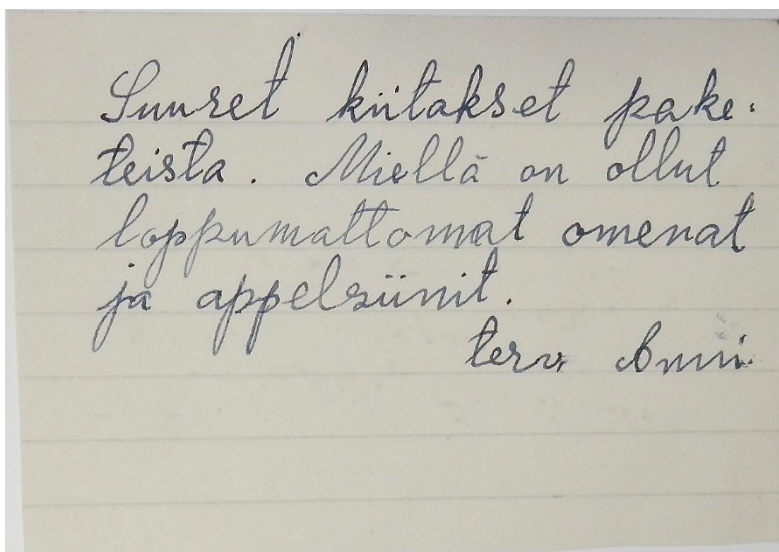 Suuret kiitokset pake-
teista. Miellä on ollut
loppumattomat omenat
ja appelsiinit.
terv. Anni